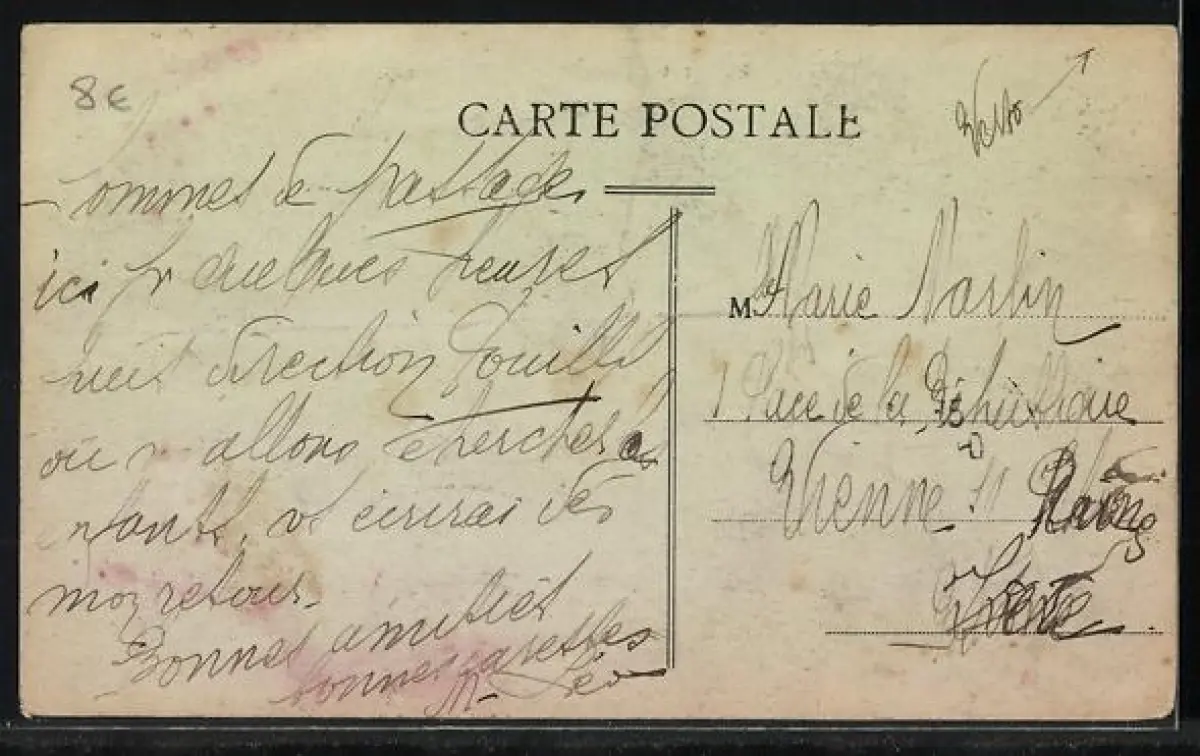 8€
CARTE POSTALE
Verso
Sommes de passage
ici pr quelques heures
nuit direction
où n. allons chercher
enfants, vs écrirai dès
mon retour.
Bonnes amitiés
bonnes caresses
Léo
Mme Marie Martin
Place de la République
Vienne
Isère